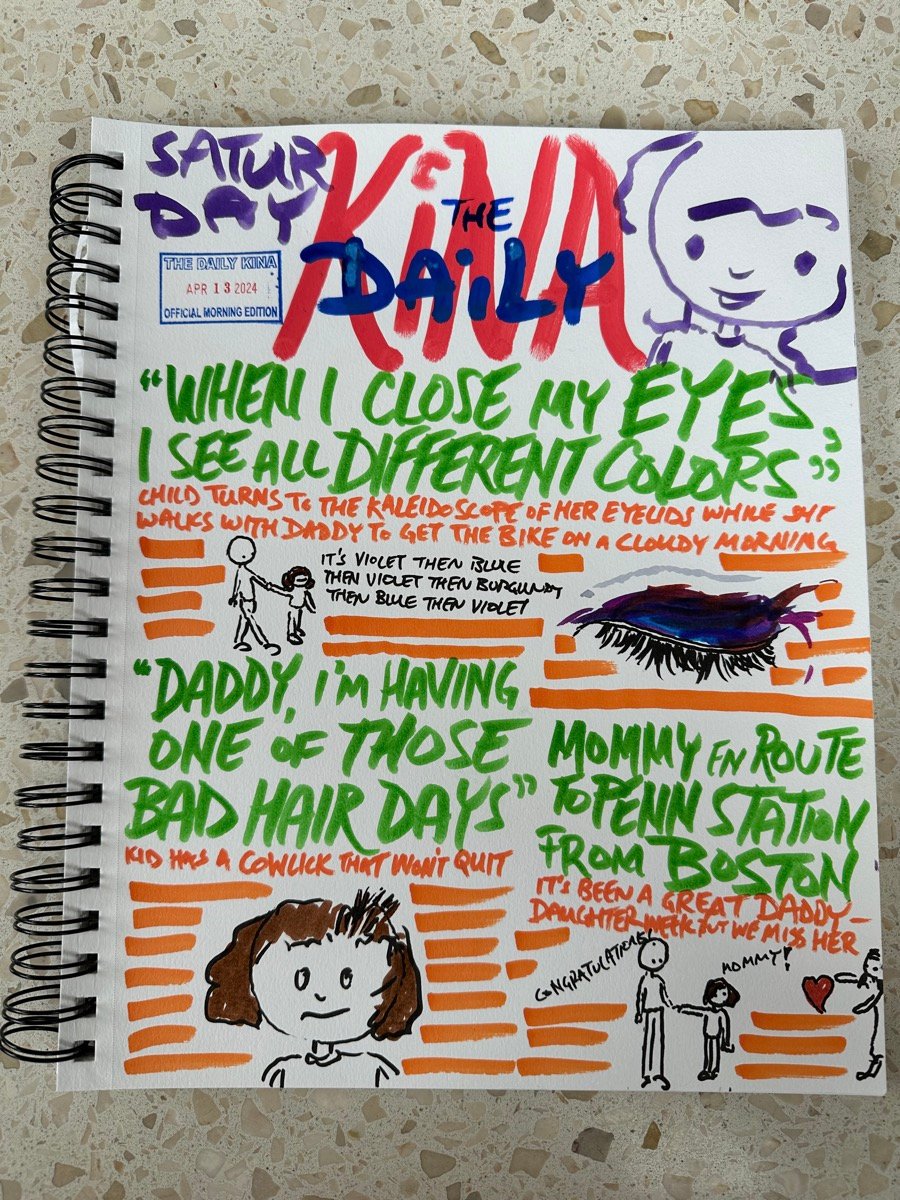 SATUR
DAY
KiNA
THE
DAiLY
THE DAILY KINA
APR 13 2024
OFFICIAL MORNING EDITION
“WHEN I CLOSE MY EYES
I SEE ALL DIFFERENT COLORS”
CHILD TURNS TO THE KALEIDOSCOPE OF HER EYELIDS WHILE SHE
WALKS WITH DADDY TO GET THE BIKE ON A CLOUDY MORNING
IT'S VIOLET THEN BLUE
THEN VIOLET THEN BURGUNDY
THEN BLUE THEN VIOLET
“DADDY, i'M HAVING
ONE OF THOSE
BAD HAIR DAYS”
KID HAS A COWLICK THAT WON'T QUIT
MOMMY EN ROUTE
TO PENN STATION
FROM BOSTON
IT'S BEEN A GREAT DADDY-
DAUGHTER WEEK BUT WE MISS HER
CONGRATULATIONS!
MOMMY!